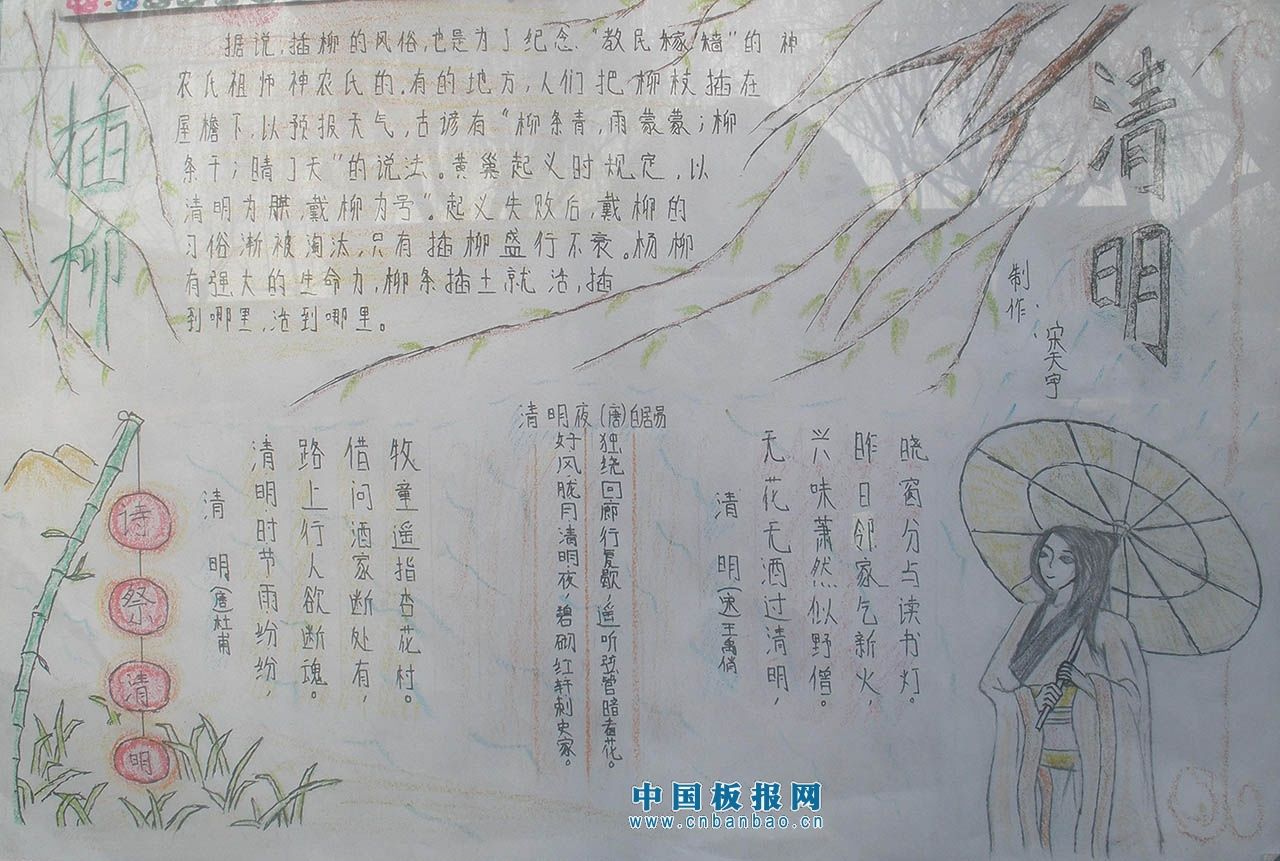 插柳
据说，插柳的风俗，也是为了纪念"教民嫁穑"的神
农氏祖师神农氏的。有的地方，人们把柳枝插在
屋檐下，以预报天气，古谚有"柳条青，雨蒙蒙；柳
条干；晴了天"的说法。黄巢起义时规定，以
清明为期，戴柳为号"。起义失败后，戴柳的
习俗渐被淘汰，只有插柳盛行不衰。杨柳
有强大的生命力，柳条插土就活，插
到哪里，活到哪里。
清明
制作：
宋天宇
诗祭清明
清明(唐)杜甫
清明时节雨纷纷，
路上行人欲断魂。
借问酒家断处有，
牧童遥指杏花村。
清明夜(唐)白居易
好风胧月清明夜，碧砌红轩刺史家。
独绕回廊行复歇，遥听弦管暗看花。
清明(宋)王禹偁
无花无酒过清明，
兴味萧然似野僧。
昨日邻家乞新火，
晓窗分与读书灯。
中国板报网
www.cnbanbao.cn